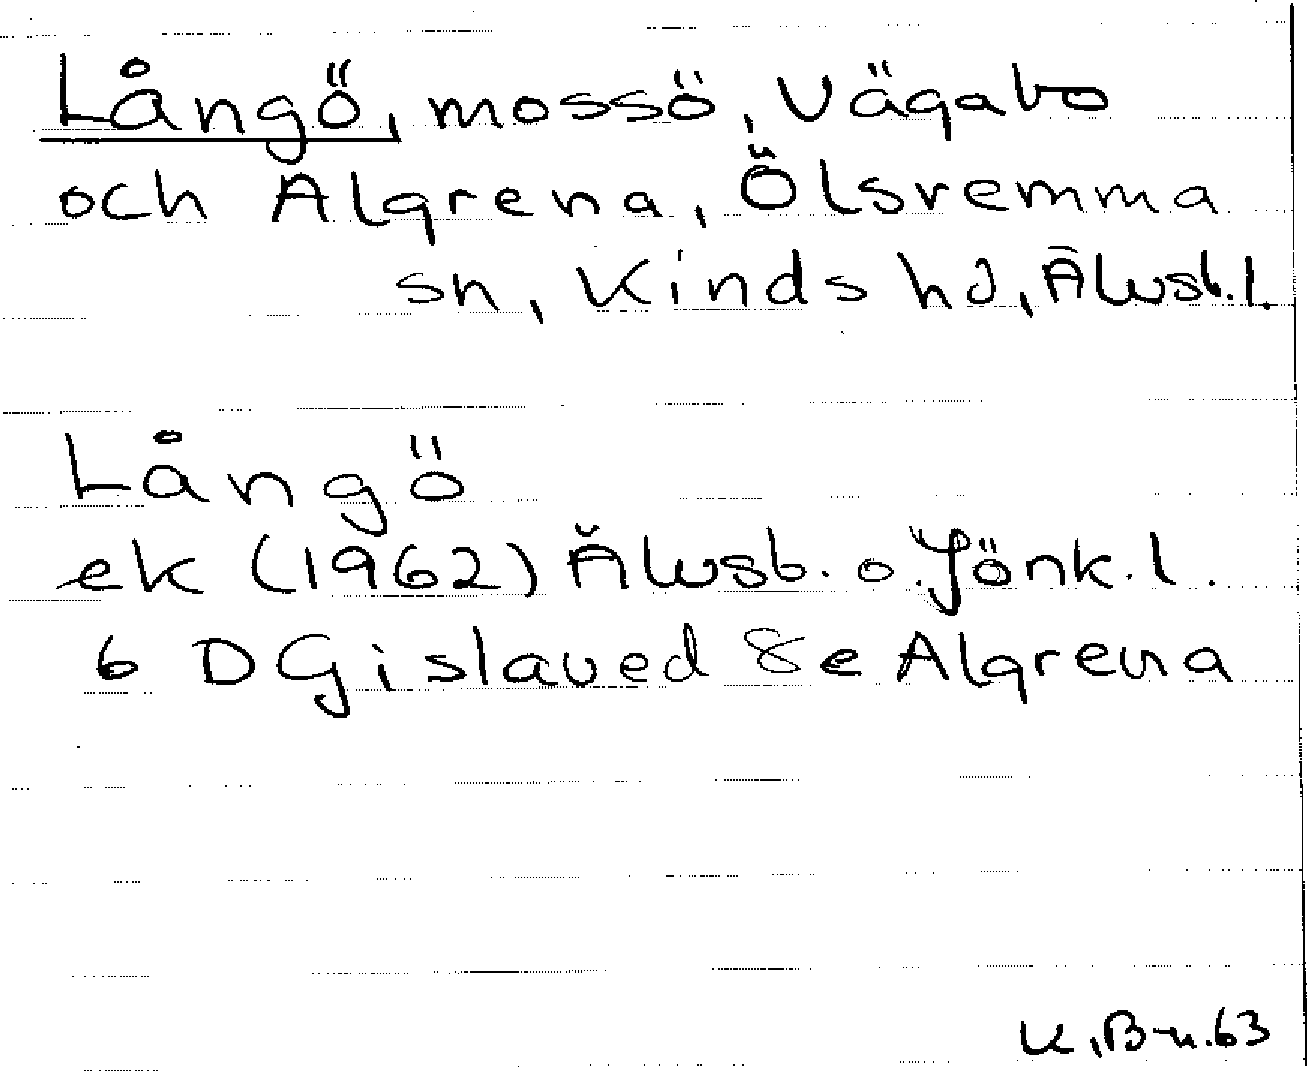 Långö, mossö, Vägabo
och Algrena, Ölsremma
sn, Kinds hd, Älvsb.l.
Långö
ek (1962) Älvsb. o. Jönk.l.
6 D Gislaved 8e Algrena
K,B-n.63